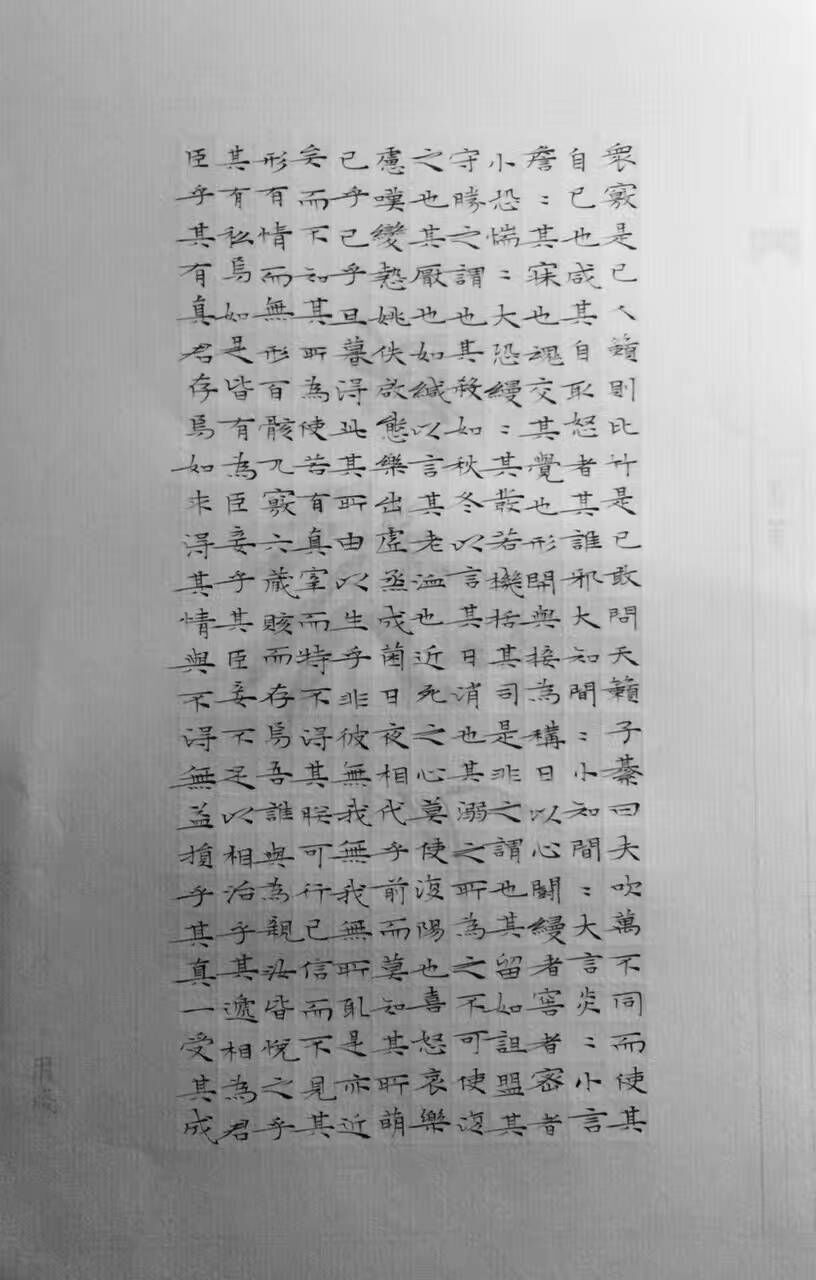 衆竅是已人籟則比竹是已敢問天籟子綦曰夫吹萬不同而使其
自已也咸其自取怒者其誰邪大知間〻小知間〻大言炎〻小言
詹〻其寐也魂交其覺也形開與接為構日以心鬭縵者窖者密者
小恐惴〻大恐縵〻其發若機栝其司是非之謂也其留如詛盟其
守勝之謂也其殺如秋冬以言其日消也其溺之所為之不可使復
之也其厭也如緘以言其老洫也近死之心莫使復陽也喜怒哀樂
慮嘆變慹姚佚啟態樂出虛烝成菌日夜相代乎前而莫知其所萌
已乎已乎旦暮得此其所由以生乎非彼無我無我無所取是亦近
矣而不知其所為使若有真宰而特不得其眹可行已信而不見其
形有情而無形百骸九竅六藏賅而存焉吾誰與為親汝皆悅之乎
其有私焉如是皆有為臣妾乎其臣妾不足以相治乎其遞相為君
臣乎其有真君存焉如求得其情與不得無益損乎其真一受其成